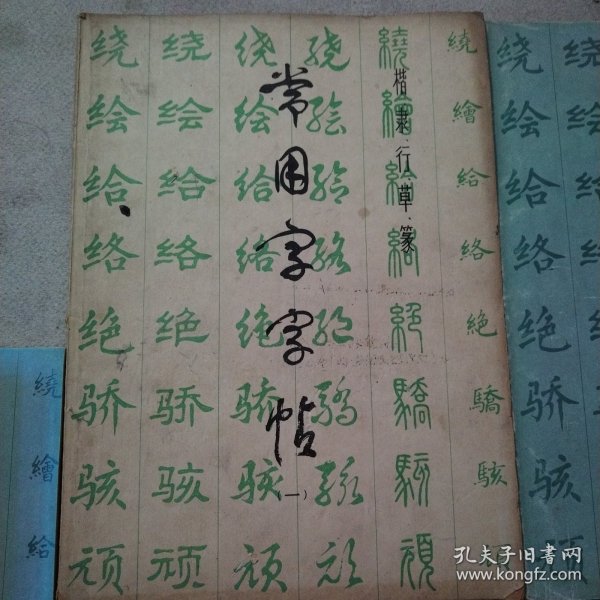 常用字字帖
(一)
楷·隶·行·草·篆
绕 绕 绕 绕 繞 繞
绘 绘 绘 绘 繪 繪
给 给 给 给 給 給
络 络 络 络 絡 絡
绝 绝 绝 绝 絕 絶
骄 骄 骄 骄 驕 驕
骇 骇 骇 骇 駭 駭
顽 顽 顽 顽 頑
繞
繪
給
绕
绘
给
络
绝
骄
骇
孔夫子旧书网
www.kongfz.com